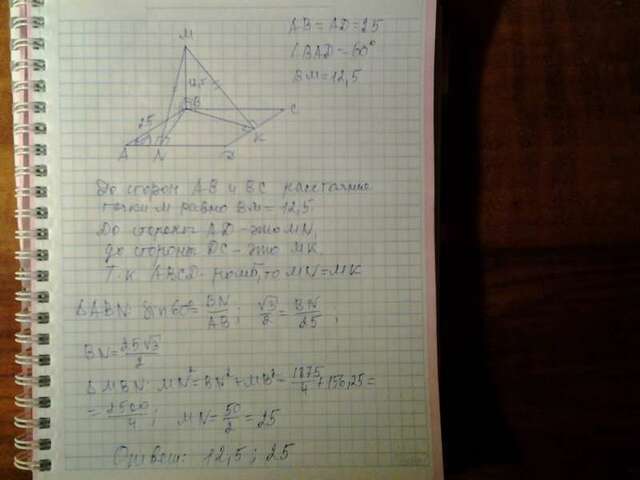 AB = AD = 25
∠BAD = 60°
BM = 12,5
M
12,5
B
C
25
A
N
K
До сторон AB и BC расстояние
точки M равно BM = 12,5.
До стороны AD - это MN,
до стороны DC - это MK.
Т.К ABCD - ромб, то MN = MK
ΔABN: sin60° = BN/AB; √3/2 = BN/25;
BN = 25√3/2
ΔMBN: MN² = BN² + MB² = 1875/4 + 156,25 =
= 2500/4; MN = 50/2 = 25
Ответ: 12,5 ; 25